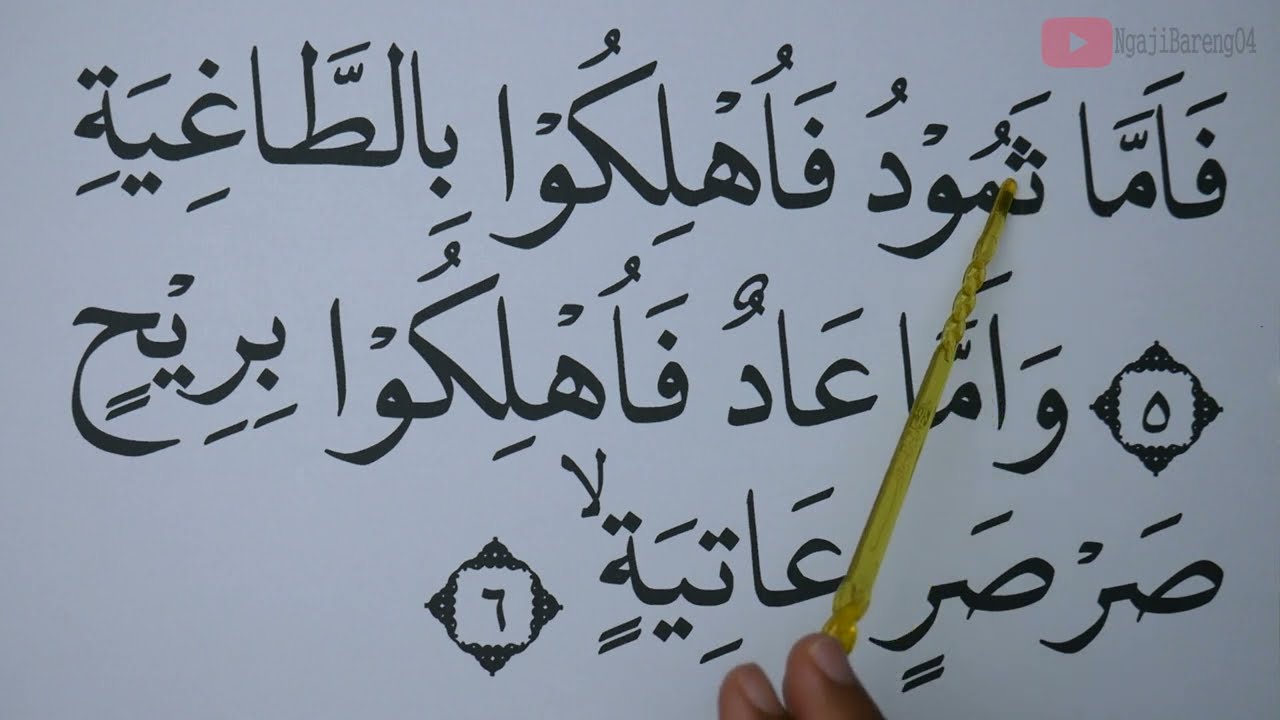 NgajiBareng04
فَاَمَّا ثَمُوْدُ فَاُهْلِكُوْا بِالطَّاغِيَةِ
٥ وَاَمَّا عَادٌ فَاُهْلِكُوْا بِرِيْحٍ
صَرْصَرٍ عَاتِيَةٍ ۙ ٦